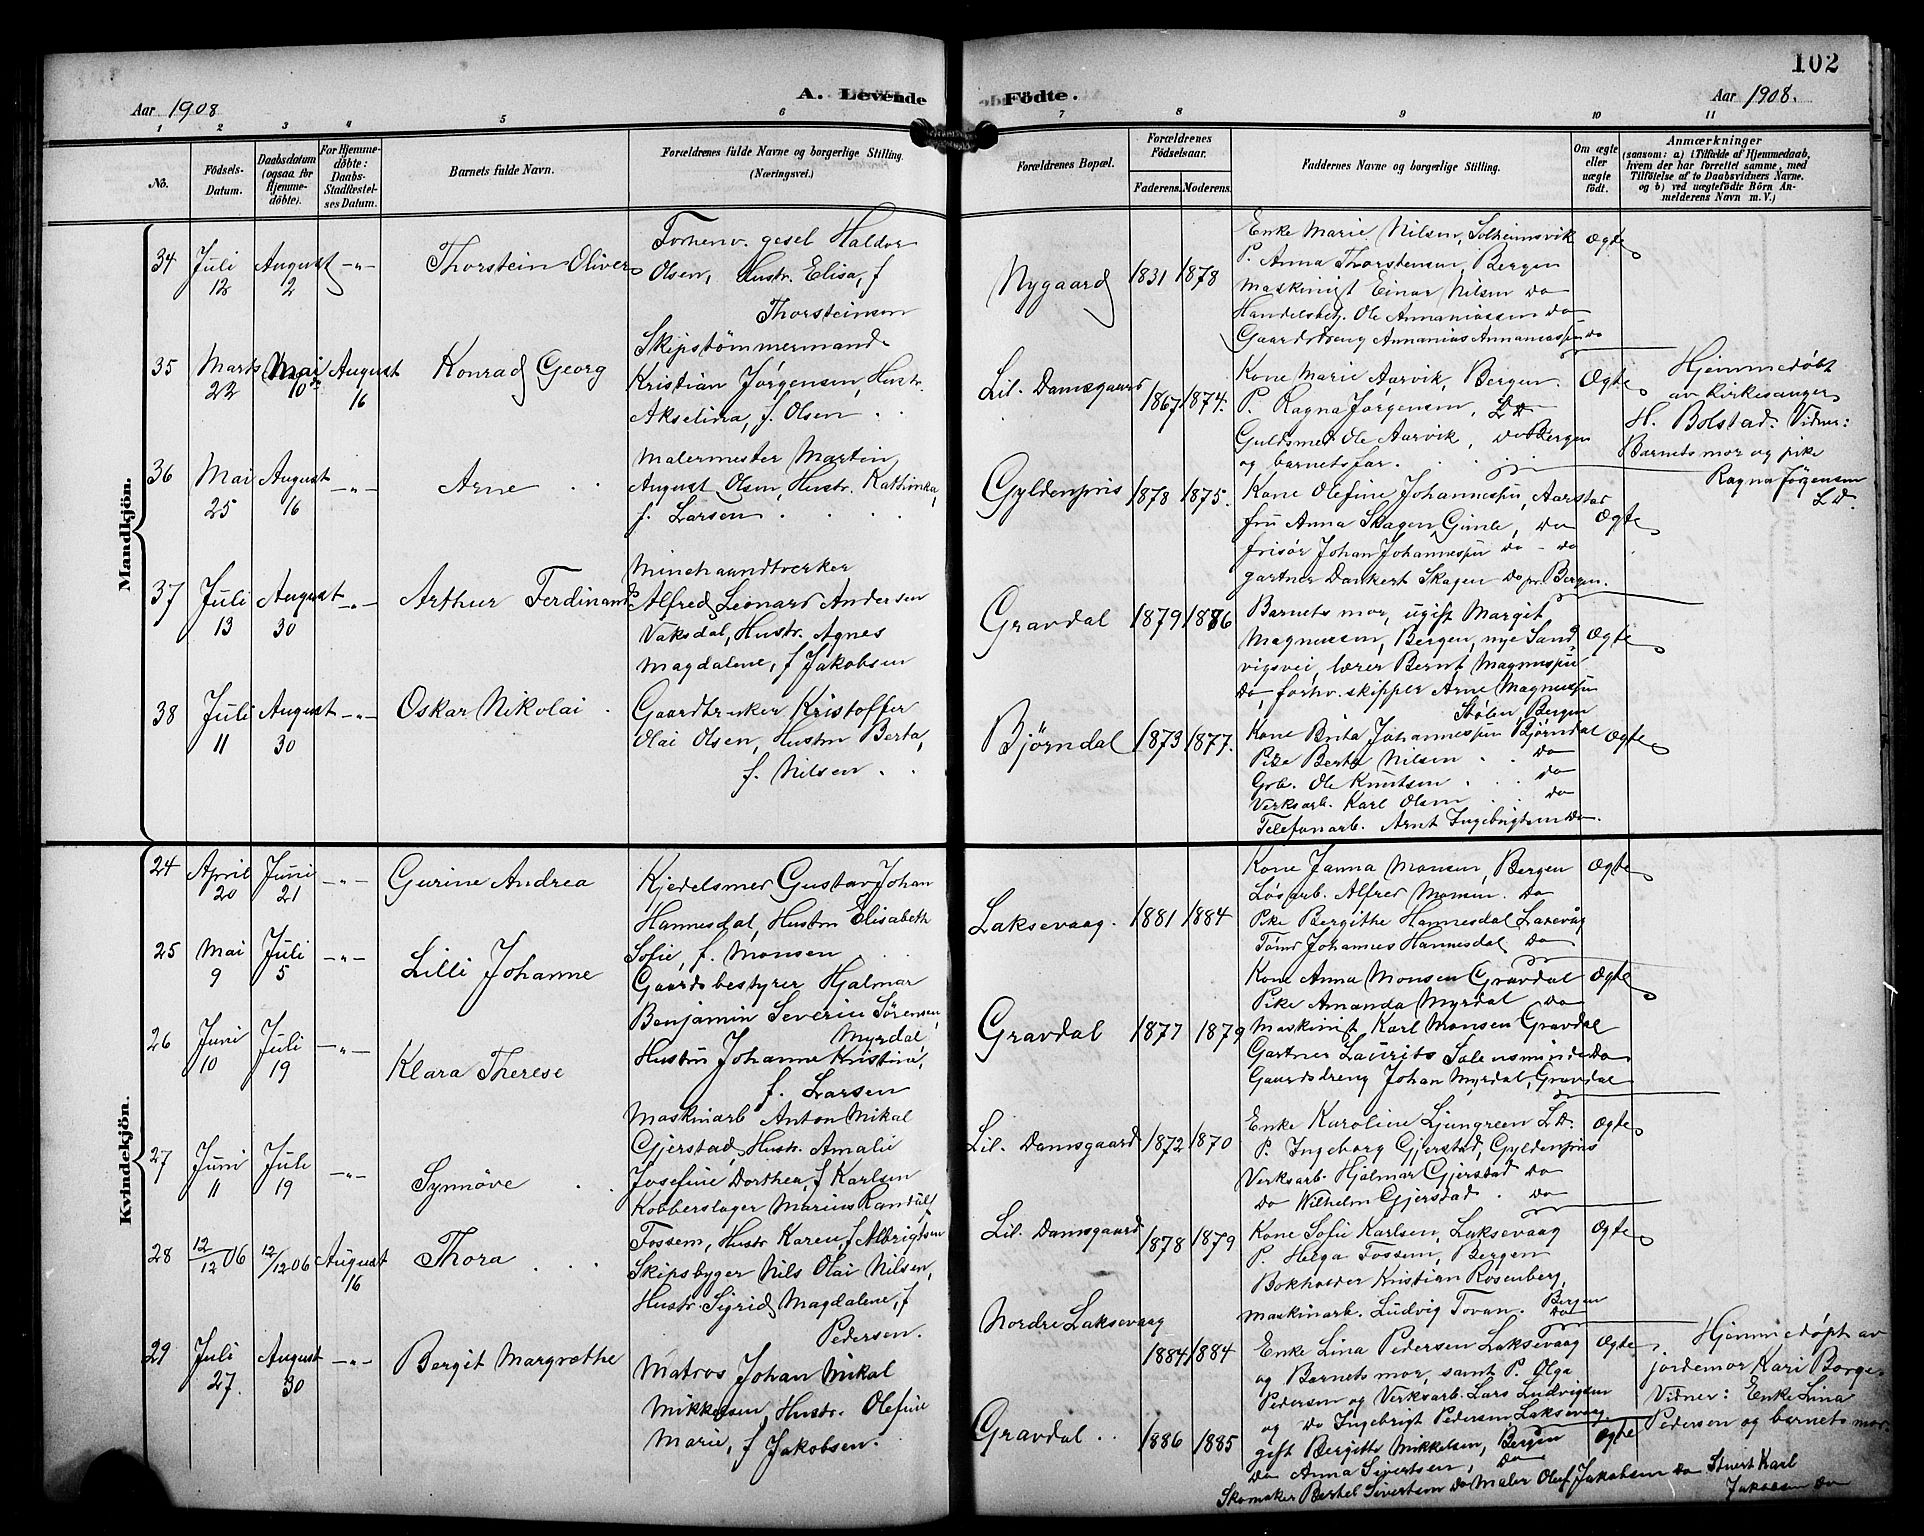 102
Aar 1908
A. Levende Födte.
Aar 1908.
1 2 3 4 5 6 7 8 9 10 11
No.
Födsels-Datum.
Daabsdatum (ogsaa for Hjemmedöbte).
For Hjemmedöbte: Daabs-Stadfæstelses Datum.
Barnets fulde Navn.
Forældrenes fulde Navne og borgerlige Stilling.
(Næringsvei.)
Forældrenes Bopæl.
Forældrenes Födselsaar.
Faderens. Moderens.
Faddernes Navne og borgerlige Stilling.
Om ægte eller uægte födt.
Anmærkninger
(saasom: a) i Tilfælde af Hjemmedaab, hvem der har forrettet samme, med Tilföielse af to Daabsvidners Navne. og b) ved uægtefödte Börn Anmelderens Navn m. V.)
Mandkjön.
34 Juli 12 August 2 -"- Thorstein Oliver
Forhenv. gesel Haldor
Olsen, Hustr. Elisa, f
Thorsteinsen
Nygaard 1831 1878
Enke Marie Nilsen, Solheimsvik
P. Anna Thorstensen, Bergen
Maskinist Einar Nilsen do
Handelsbetj. Ole Annaniassen do
Gaardsdreng Annanias Annaniassen do
Ægte
35 Marts 22 Mai 10de August 16 Konrad Georg
Skipstømmermand
Kristian Jørgensen, Hustr.
Akselina, f. Olsen
Lil. Damsgaard 1867 1874.
Kone Marie Aarvik, Bergen.
P. Ragna Jørgensen, LD
Guldsmed Ole Aarvik, Bergen
og barnets far.
Ægte
Hjemmedøbt
av kirkesanger
H. Bolstad. Vidner:
Barnets mor og pike
Ragna Jørgensen
LD.
36 Mai 25 August 16 -"- Arne
Malermester Martin
August Olsen, Hustr. Kathinka,
f. Larsen
Gyldenpris 1878 1875.
Kone Olefine Johannessen, Aarstad
fru Anna Skagen, Gimle, do
frisør Johan Johannessen do - do
gartner Dankert Skagen do pr. Bergen.
Ægte
37 Juli 13 August 30 -"- Arthur Ferdinand
Minehaandtverker
Alfred Leonard Andersen
Vaksdal, Hustr. Agnes
Magdalene, f Jakobsen
Gravdal 1879 1886
Barnets mor, ugift Margit
Magnussen, Bergen, nye Sand
vigsvei, lærer Bernt Magnussen
do, forhv. skipper Arne Magnussen
Stølen, Bergen
Ægte
38 Juli 11 August 30 -"- Oskar Nikolai
Gaardbruker Kristoffer
Olai Olsen, Hustru Berta,
f. Nilsen
Bjørndal 1873 1877.
Kone Brita Johannessen Bjørndal
Pike Berta Nilsen do
Grb. Ole Knutsen do
Verksarb. Karl Olsen do
Telefonarb. Arnt Ingebrigtsen do.
Ægte
Kvindekjön.
24 April 20 Juni 21 -"- Gurine Andrea
Kjedelsmed Gustav Johan
Hannesdal, Hustru Elisabeth
Sofie, f. Monsen
Laksevaag. 1881 1884
Kone Janna Monsen, Bergen
Løsarb. Alfred Monsen. do
Pike Bergithe Hannesdal Laxevåg
Tømr Johannes Hannesdal do
Ægte
25 Mai 9 Juli 5 -"- Lilli Johanne
Gaardsbestyrer Hjalmar
Benjamin Severin Sørensen
Myrdal
Hustru Johanne Kristine,
f. Larsen
Gravdal 1877 1879
Kone Anna Monsen Gravdal
Pike Amanda Myrdal do
Maskinist Karl Monsen Gravdal
Gartner Laurits Salensminde do
Gaardsdreng Johan Myrdal, Gravdal
Ægte
26 Juni 10 Juli 19 -"- Klara Therese
Maskinarb Anton Mikal
Gjerstad, Hustr. Amalie
Josefine Dorthea, f Karlsen
Lil. Damsgaard 1872 1870
Enke Karoline Ljungreen LD.
P. Ingeborg Gjerstad, Gyldenpris
Verksarb. Hjalmar Gjerstad do
do Wilhelm Gjerstad. do
Ægte
27 Juni 11 Juli 19 -"- Synnöve
Kobberslager Marius Randulf
Fossem, Hustr Karen, f Albrigtsen
Lil. Damsgaard 1878 1879
Kone Sofie Karlsen, Laksevaag
P. Helga Fossem, Bergen
Bokholder Kristian Rosenberg,
Maskinarb. Ludvig Tovan. Bergen
do
Ægte
28 12/12 06 12/12 06 August 16 Thora
Skipsbyger Nils Olai Nilsen,
Hustr. Sigrid Magdalene, f
Pedersen.
Nordre Laksevaag 1884 1884
Enke Lina Pedersen Laksevaag
og Barnets mor, samt P. Olga
Pedersen og Verksarb. Lars Ludvigsen
og do Ingebrigt Pedersen Laksevaag.
Ægte
Hjemmedøpt av
jordemor Kari Borge.
Vidner: Enke Lina
Pedersen og barnets mor.
29 Juli 27. August 30 -"- Bergit Margrethe
Matros Johan Mikal
Mikkelsen, Hustr. Olefine
Marie, f Jakobsen.
Gravdal 1886 1885
gift Bergitte Mikkelsen, Bergen
do Anna Sivertsen, do
Skomaker Bertel Sivertsen do Maler Oluf Jakobsen do Stuert Karl
Jakobsen do
Ægte